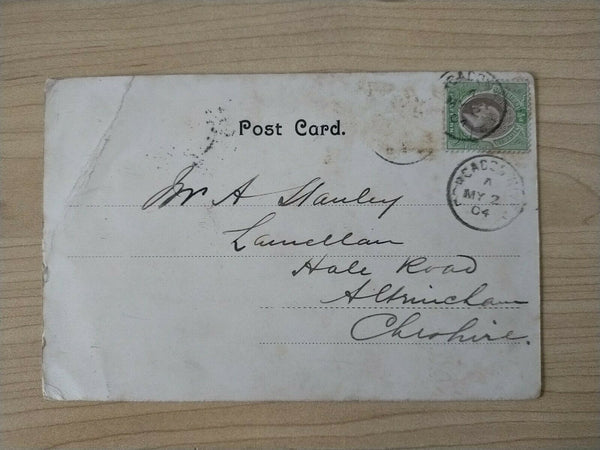 Post Card.
Mr A Stanley
Lamellan
Hale Road
Altrincham
Cheshire.
A
MY 2
04